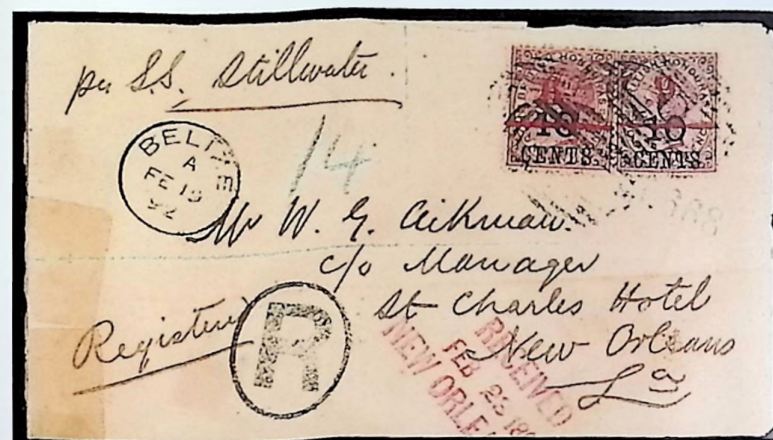 per S.S. Stillwater.
BRITISH HONDURAS
10 10
CENTS CENTS
BELIZE
A
FE 19
92
14
Mr W. G. Aikman.
c/o Manager
St Charles Hotel
New Orleans
La
Registered
R
RECEIVED
FEB 25 18
NEW ORLE